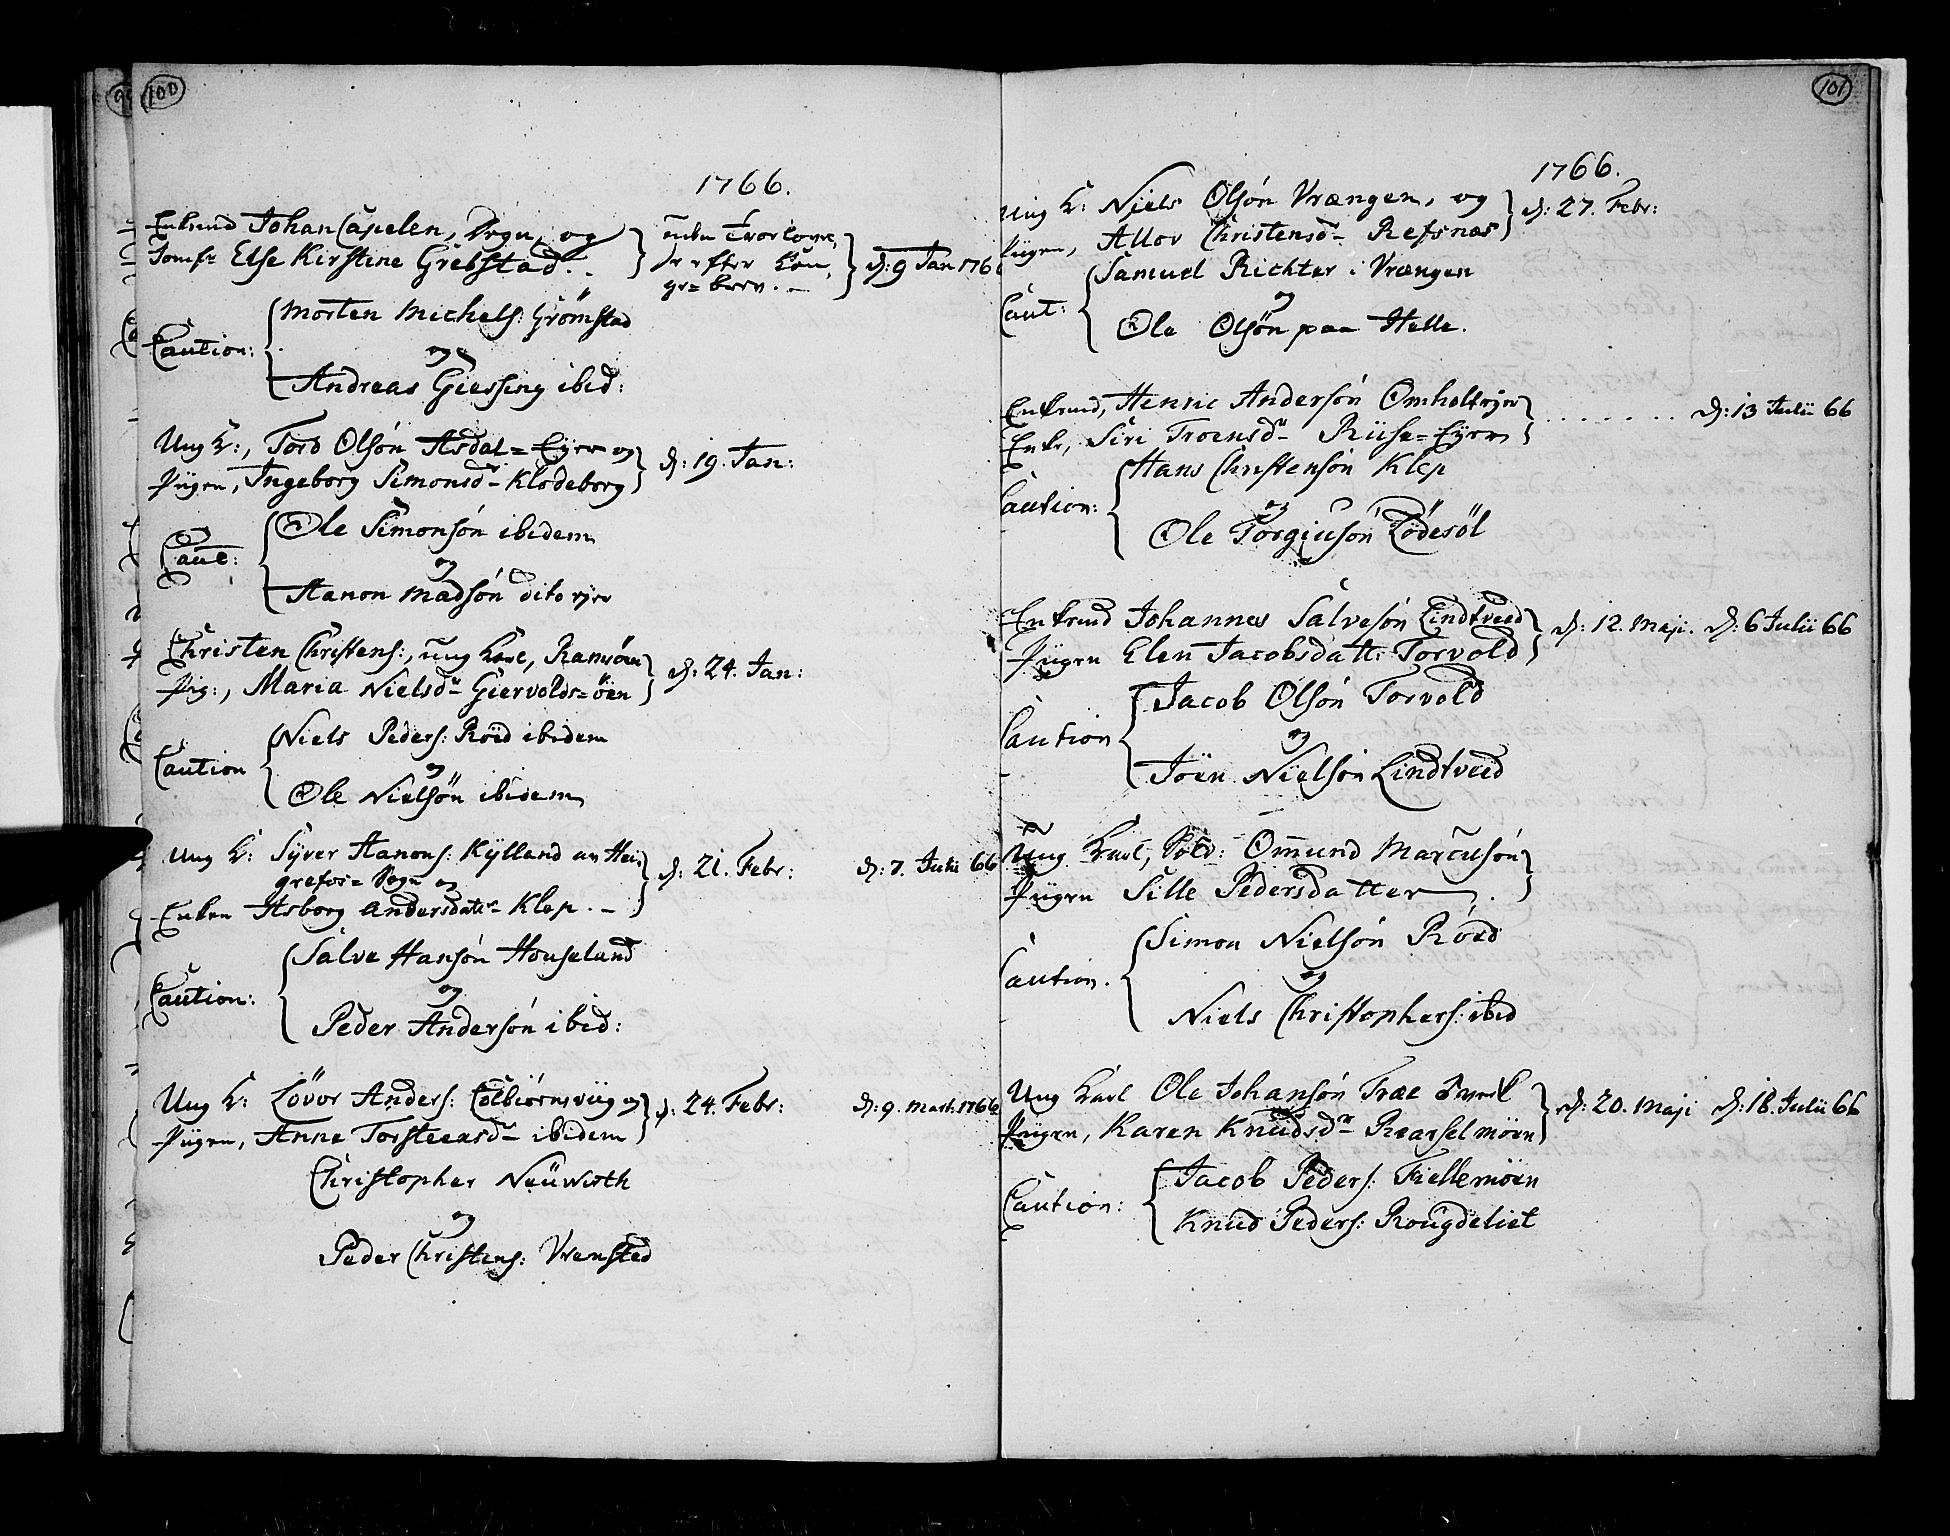 100
1766.
Enkemd Johan Capelen, Degn, og
Jomfr Else Kirstine Grebstad.
uden Trolovelse,
efter Kon,
ge= brev. –
d: 9 Jan 1766
Caution:
Morten Michels: Grömstad
og
Andreas Giessing ibid:
Ung K:, Tord Olsön Asdal=Eyer og
Pigen, Ingeborg Simonsdr Klodeborg
d: 19. Jan:
Caut:
Ole Simonsön ibidem
og
Aanon Madsön dito eyer
Christen Christens:, ung Karl, Ramsöen
Pig:, Maria Nielsdr Giervolds=öen
d: 24. Jan:
Caution
Niels Peders: Röed ibidem
og
Ole Nielsön ibidem
Ung K: Syver Aanons: Kylland
d: 21. Febr:
d: 7. Julii 66
Sogn og
Enken Asborg Andersdatr Klep. –
Caution:
Salve Hansön Houseland
og
Peder Andersön ibid:
Ung K: Lövor Anders: Colbiörnsviig og
Pigen, Anne Torsteensdr ibidem
d: 24. Febr:
d: 9. Mart: 1766
Christopher Neüwirth
og
Peder Christens: Vrensted
101
1766.
Ung K: Niels Olsön Vrængen, og
Pigen, Allov Christensdr Refsnæs
d: 27. Febr:
Caut:
Samuel Richter i Vrængen
og
Ole Olsön paa Helle.
Enkemd, Henric Andersön Omholt eyer
Enke, Siri Troensdr Riise=Eyer
d: 13 Julii 66
Caution:
Hans Christensön Klep
og
Ole Torgiusön Lödesöl
Enkemd Johannes Salvesön Lindtveed
Pigen Elen Jacobsdatt: Torvold
d: 12. Maji. d: 6 Julii 66
Caution
Jacob Olsön Torvold
og
Joen Nielsön Lindtveed
Ung Karl, Sold: Ommund Marcusön
Pigen Sille Pedersdatter.
Caution.
Simon Nielsön Röed
og
Niels Christophers: ibid
Ung Karl Ole Johansön Træe
Pigen, Karen Knudsdr Rearselmöen
d: 20. Maji d: 18. Julii 66
Caution:
Jacob Peders: Fiellemöen
Knud Peders: Rougdeliet